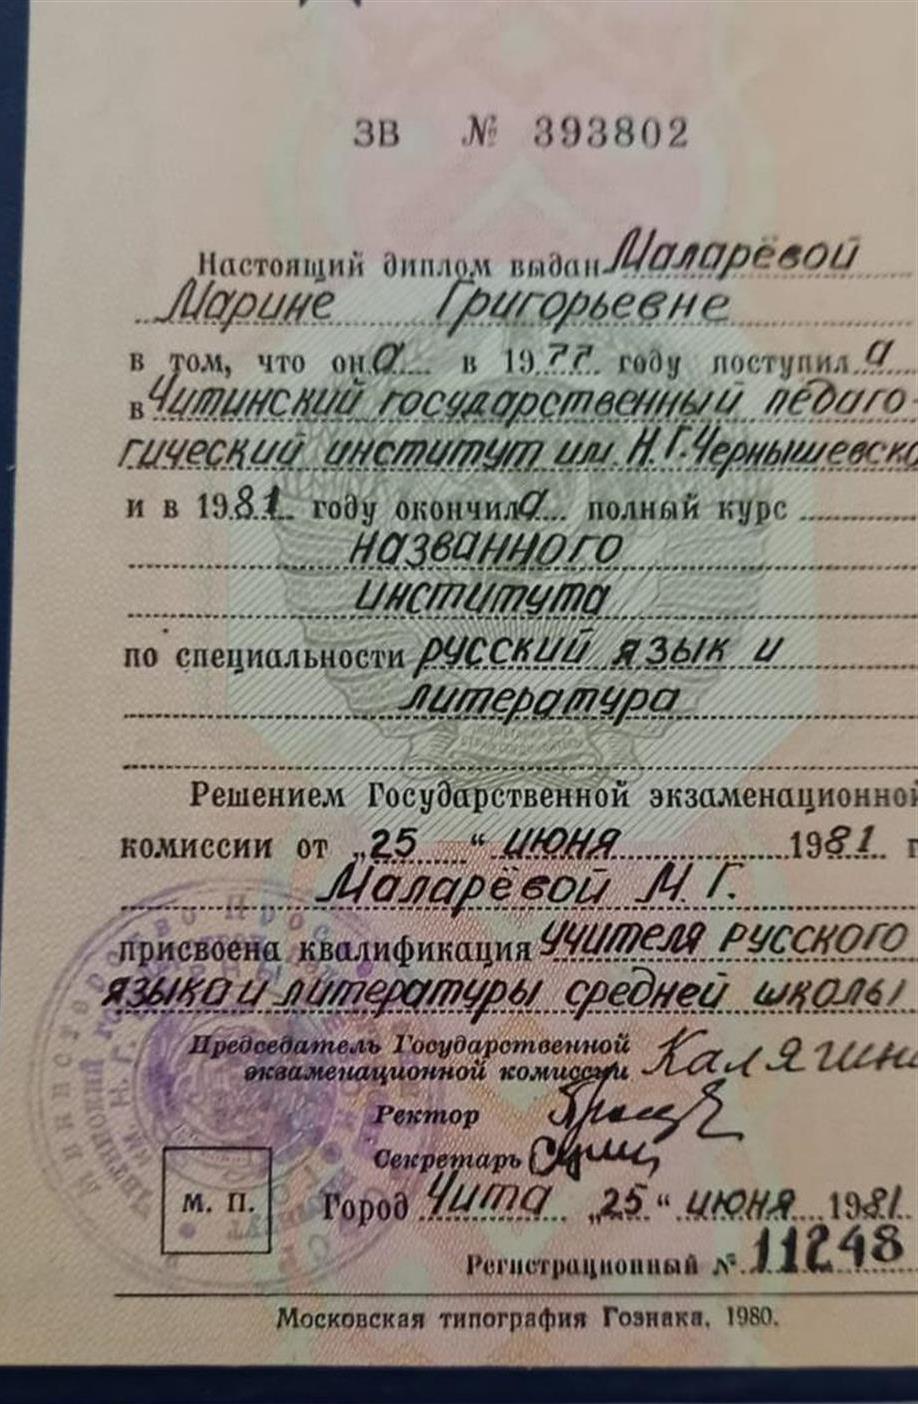 ЗВ № 393802
Настоящий диплом выдан Маларёвой
Марине Григорьевне
в том, что она в 1977 году поступила
в Читинский государственный педаго-
гический институт им. Н.Г.Чернышевско
и в 1981 году окончила полный курс
названного
института
по специальности русский язык и
литература
Решением Государственной экзаменационной
комиссии от „25“ июня 1981 г
Маларёвой М.Г.
присвоена квалификация учителя русского
языка и литературы средней школы
Председатель Государственной
экзаменационной комиссии Калягин
Ректор
Секретарь
М. П.
Город Чита „25“ июня 1981.
Регистрационный № 11248
Московская типография Гознака. 1980.